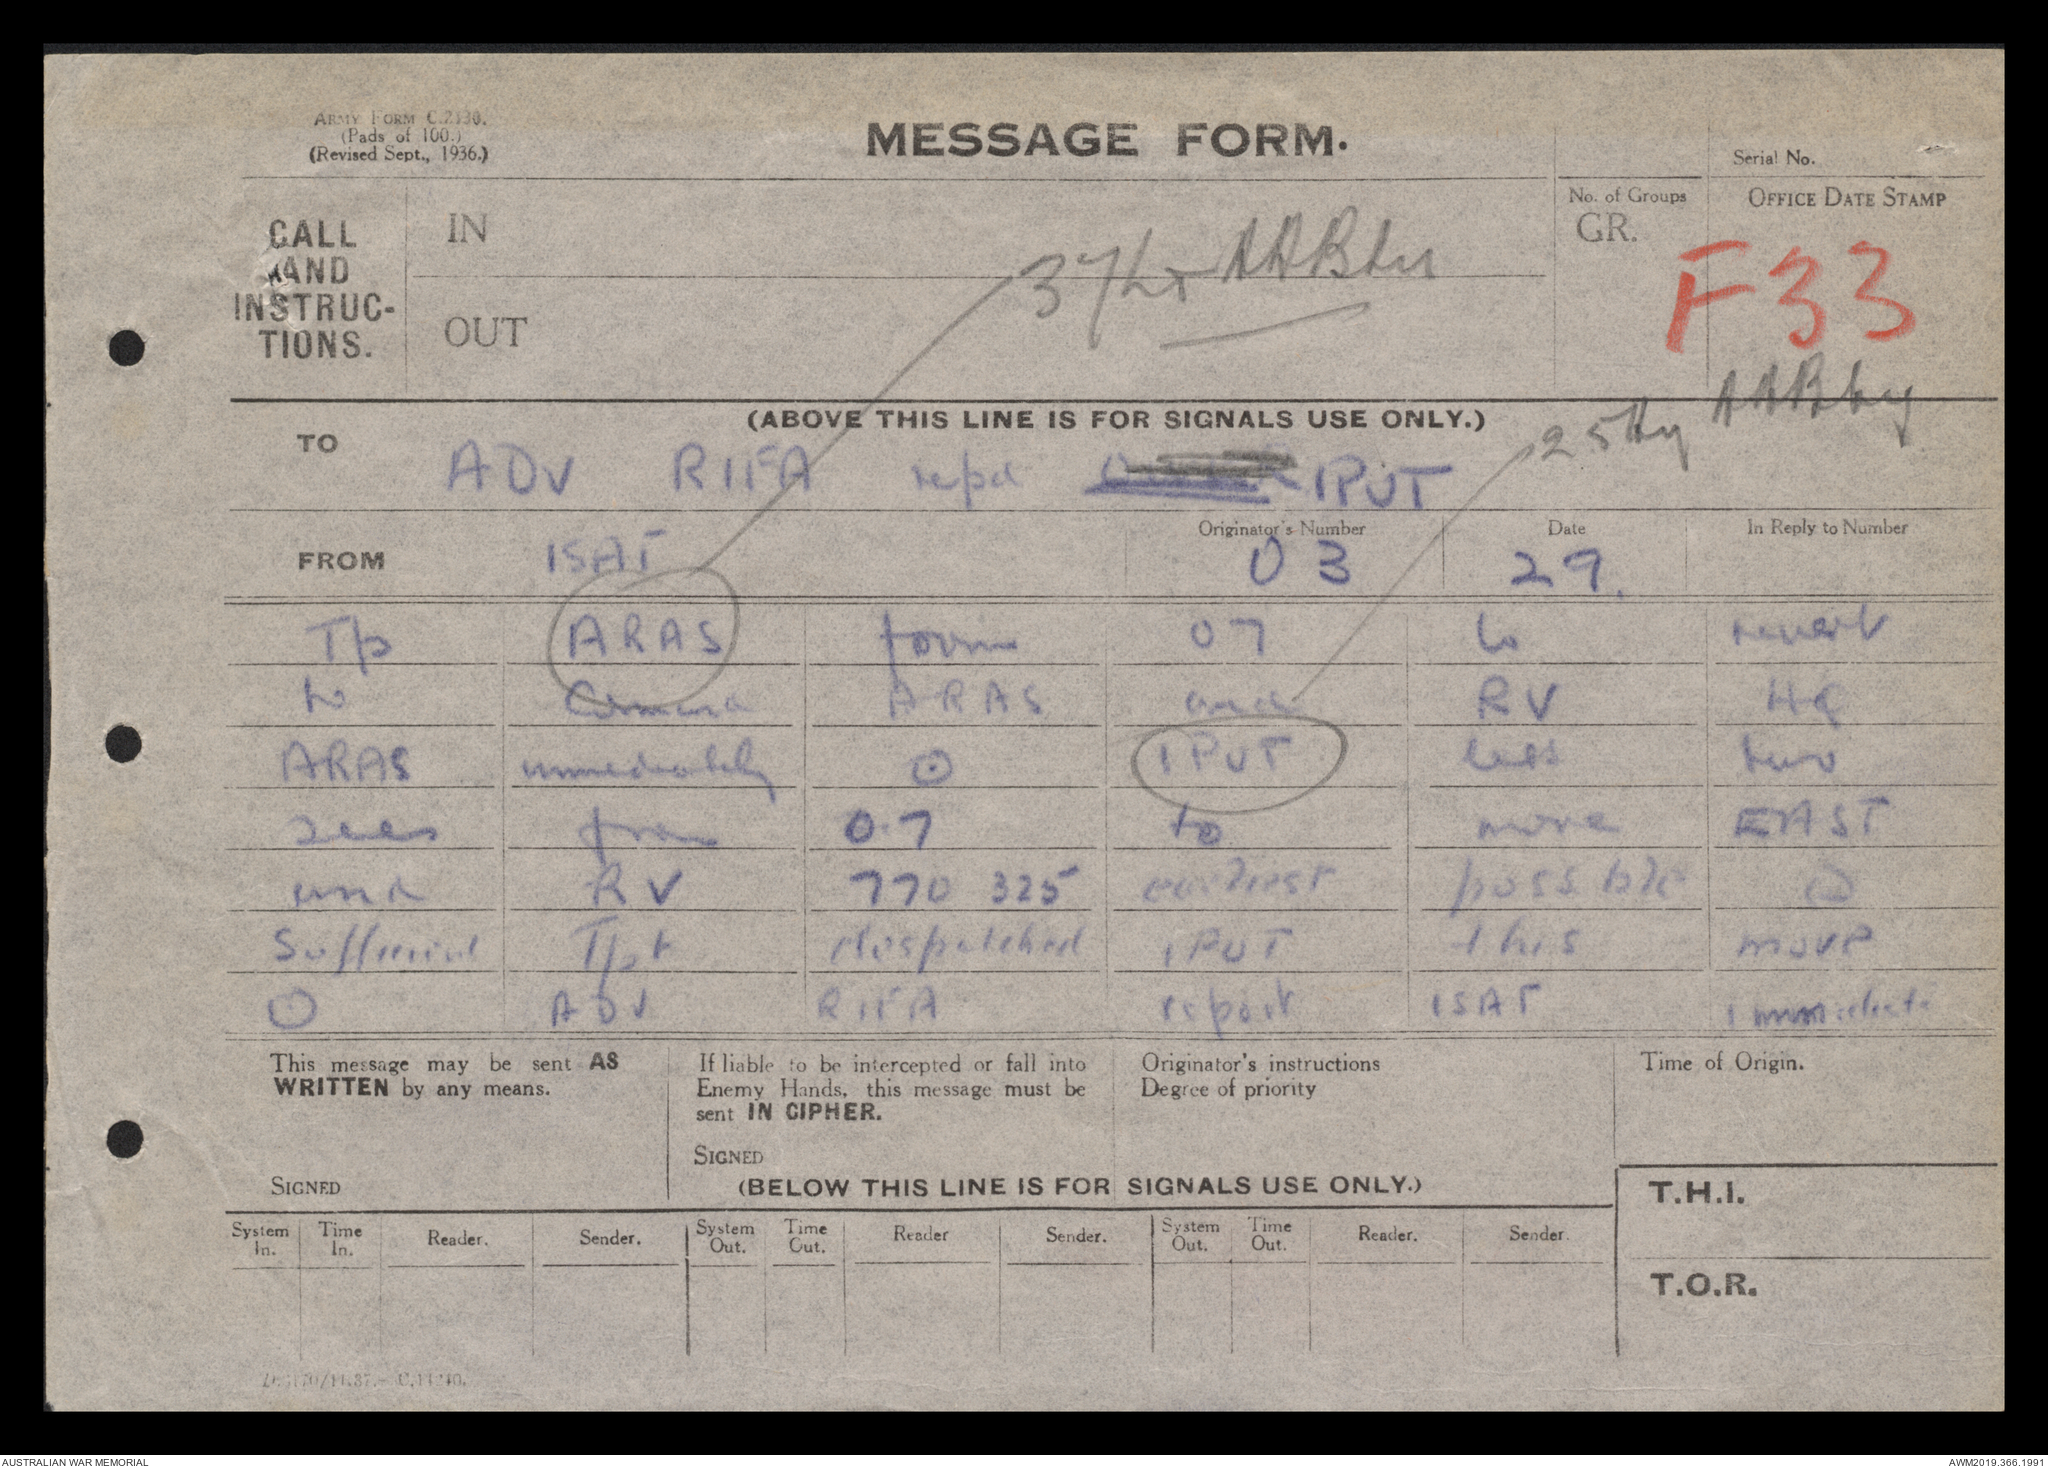 ARMY FORM C.2130.
(Pads of 100.)
(Revised Sept., 1936.)
MESSAGE FORM.
Serial No.
CALL
AND
INSTRUC-
TIONS.
IN
OUT
37 Lt AA Bty
No. of Groups
GR.
OFFICE DATE STAMP
F33
(ABOVE THIS LINE IS FOR SIGNALS USE ONLY.)
25 Hy AA Bty
TO ADV RIFA repd IPUT
FROM ISAT
Originator's Number 03
Date 29.
In Reply to Number
Tp ARAS from 07 to revert
to Command ARAS and RV HQ
ARAS immediately ⊙ IPUT less two
secs from 07 to move EAST
and RV 770 325 earliest possible ⊙
Sufficient Tpt despatched IPUT this move
⊙ ADV RIFA report ISAT immediate
This message may be sent AS
WRITTEN by any means.
SIGNED
If liable to be intercepted or fall into
Enemy Hands, this message must be
sent IN CIPHER.
SIGNED
Originator's instructions
Degree of priority
Time of Origin.
(BELOW THIS LINE IS FOR SIGNALS USE ONLY.)
T.H.I.
T.O.R.
System In. Time In. Reader. Sender. System Out. Time Out. Reader Sender. System Out. Time Out. Reader. Sender.
AUSTRALIAN WAR MEMORIAL
AWM2019.366.1991